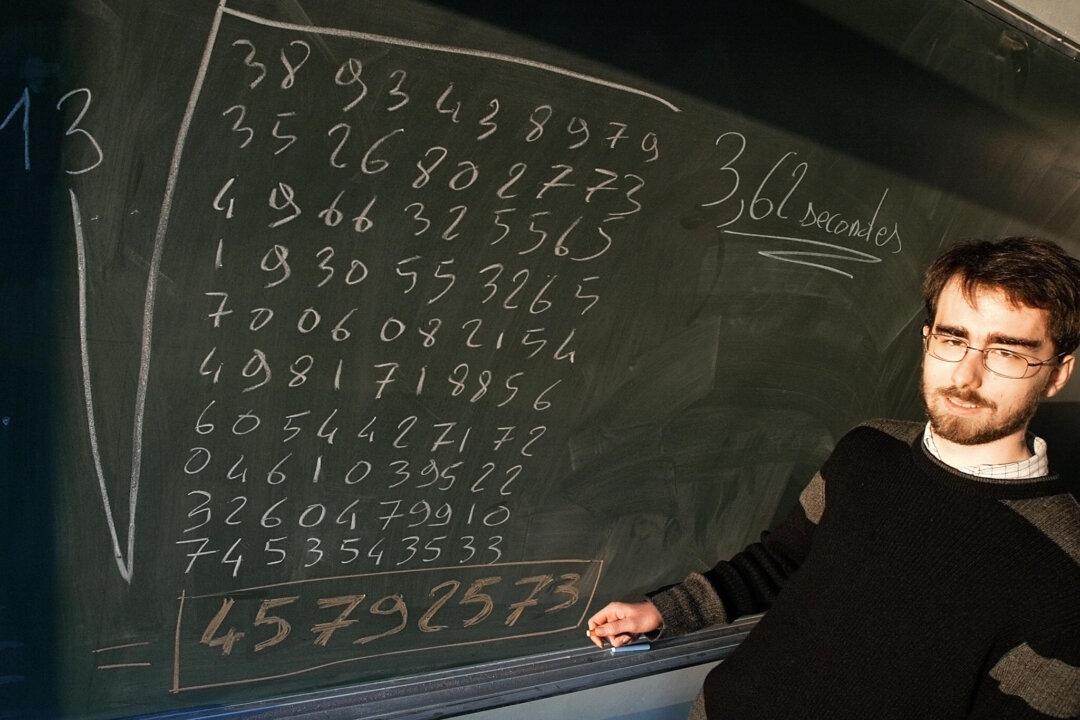 13
3893438979
3526802773
3,62 secondes
4966325565
1930553265
7006082154
4981718856
6054427172
0461039522
3260479910
7453543533
= 45792573